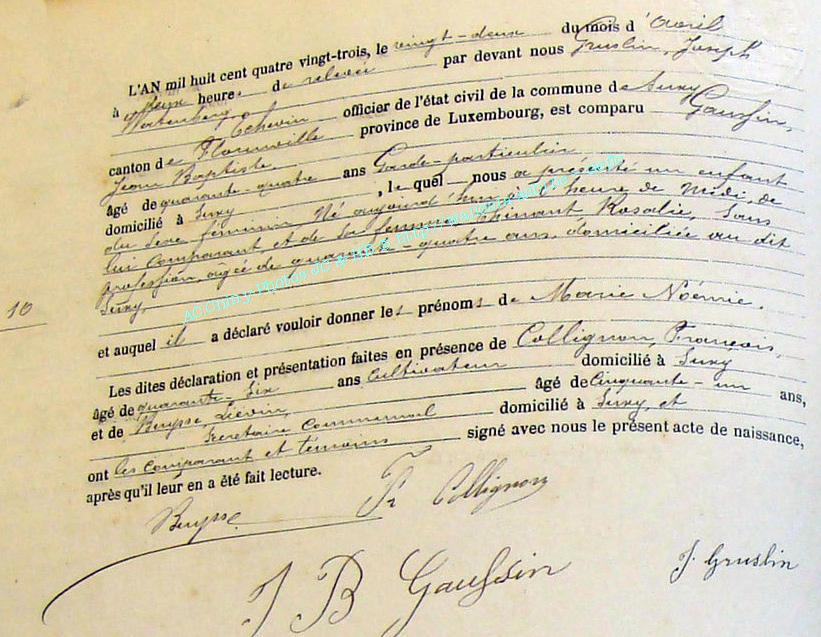 L'AN mil huit cent quatre vingt-trois, le vingt-deux du mois d'Avril
à deux heures de relevée par devant nous Gruslin, Joseph
Echevin officier de l'état civil de la commune de Suxy
canton de Florenville province de Luxembourg, est comparu Gaussin,
Jean Baptiste.
âgé de quarante-quatre ans Garde-particulier
domicilié à Suxy, lequel nous a présenté un enfant
du sexe féminin Né aujourd'hui à l'heure de midi, de
lui comparant et de sa femme Thimant, Rosalie, sans
profession, agée de quarante-quatre ans, domiciliée au dit
Suxy.
10
et auquel il a déclaré vouloir donner les prénoms de Marie Noémie.
Les dites déclaration et présentation faites en présence de Collignon, François,
âgé de quarante-six ans Cultivateur domicilié à Suxy
et de Buysse Liévin, âgé de Cinquante-un ans,
Secrétaire Communal domicilié à Suxy, et
ont les comparant et témoins signé avec nous le présent acte de naissance,
après qu'il leur en a été fait lecture.
Buysse Fr Collignon
J B Gaussin J. Gruslin